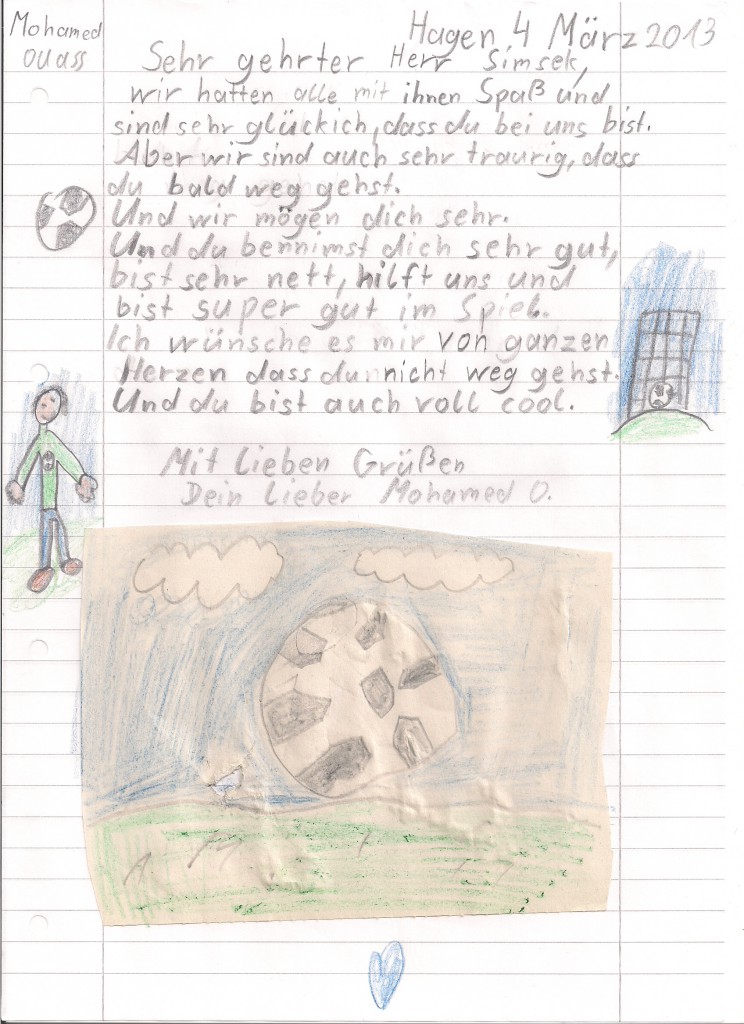 Mohamed
Ouass
Hagen 4 März 2013
Sehr gehrter Herr Simsek,
wir hatten alle mit ihnen Spaß und
sind sehr glückich, dass du bei uns bist.
Aber wir sind auch sehr traurig, dass
du bald weg gehst.
Und wir mögen dich sehr.
Und du bennimst dich sehr gut,
bist sehr nett, hilft uns und
bist super gut im Spiel.
Ich wünsche es mir von ganzen
Herzen dass du nicht weg gehst.
Und du bist auch voll cool.
Mit lieben Grüßen
Dein lieber Mohamed O.